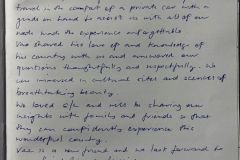 travel in the comfort of a private car with a
guide on hand to assist us with all of our
needs made the experience unforgettable
Vae shared his love of and knowledge of
his country with us and answered our
questions thoughtfully and respectfully. We
were immersed in cultural sites and scenes of
breathtaking beauty.
We loved it and will be sharing our
insights with family and friends so that
they can confidently experience this
wonderful country.
Vae is a new friend and we look forward to